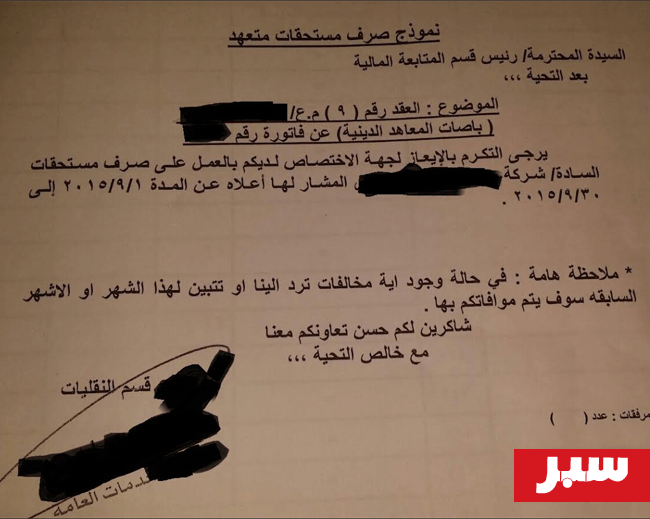 نموذج صرف مستحقات متعهد
السيدة المحترمة/ رئيس قسم المتابعة المالية
بعد التحية ،،،
الموضوع : العقد رقم ( ٩ ) م.ع/
( باصات المعاهد الدينية) عن فاتورة رقم
يرجى التكرم بالإيعاز لجهة الاختصاص لديكم بالعمل على صرف مستحقات
السادة/ شركة المشار لها أعلاه عن المدة ٢٠١٥/٩/١ إلى
٢٠١٥/٩/٣٠ .
* ملاحظة هامة : في حالة وجود اية مخالفات ترد الينا او تتبين لهذا الشهر او الاشهر
السابقه سوف يتم موافاتكم بها .
شاكرين لكم حسن تعاونكم معنا
مع خالص التحية ،،،
قسم النقليات
العامة
مرفقات : عدد ( )
سبر